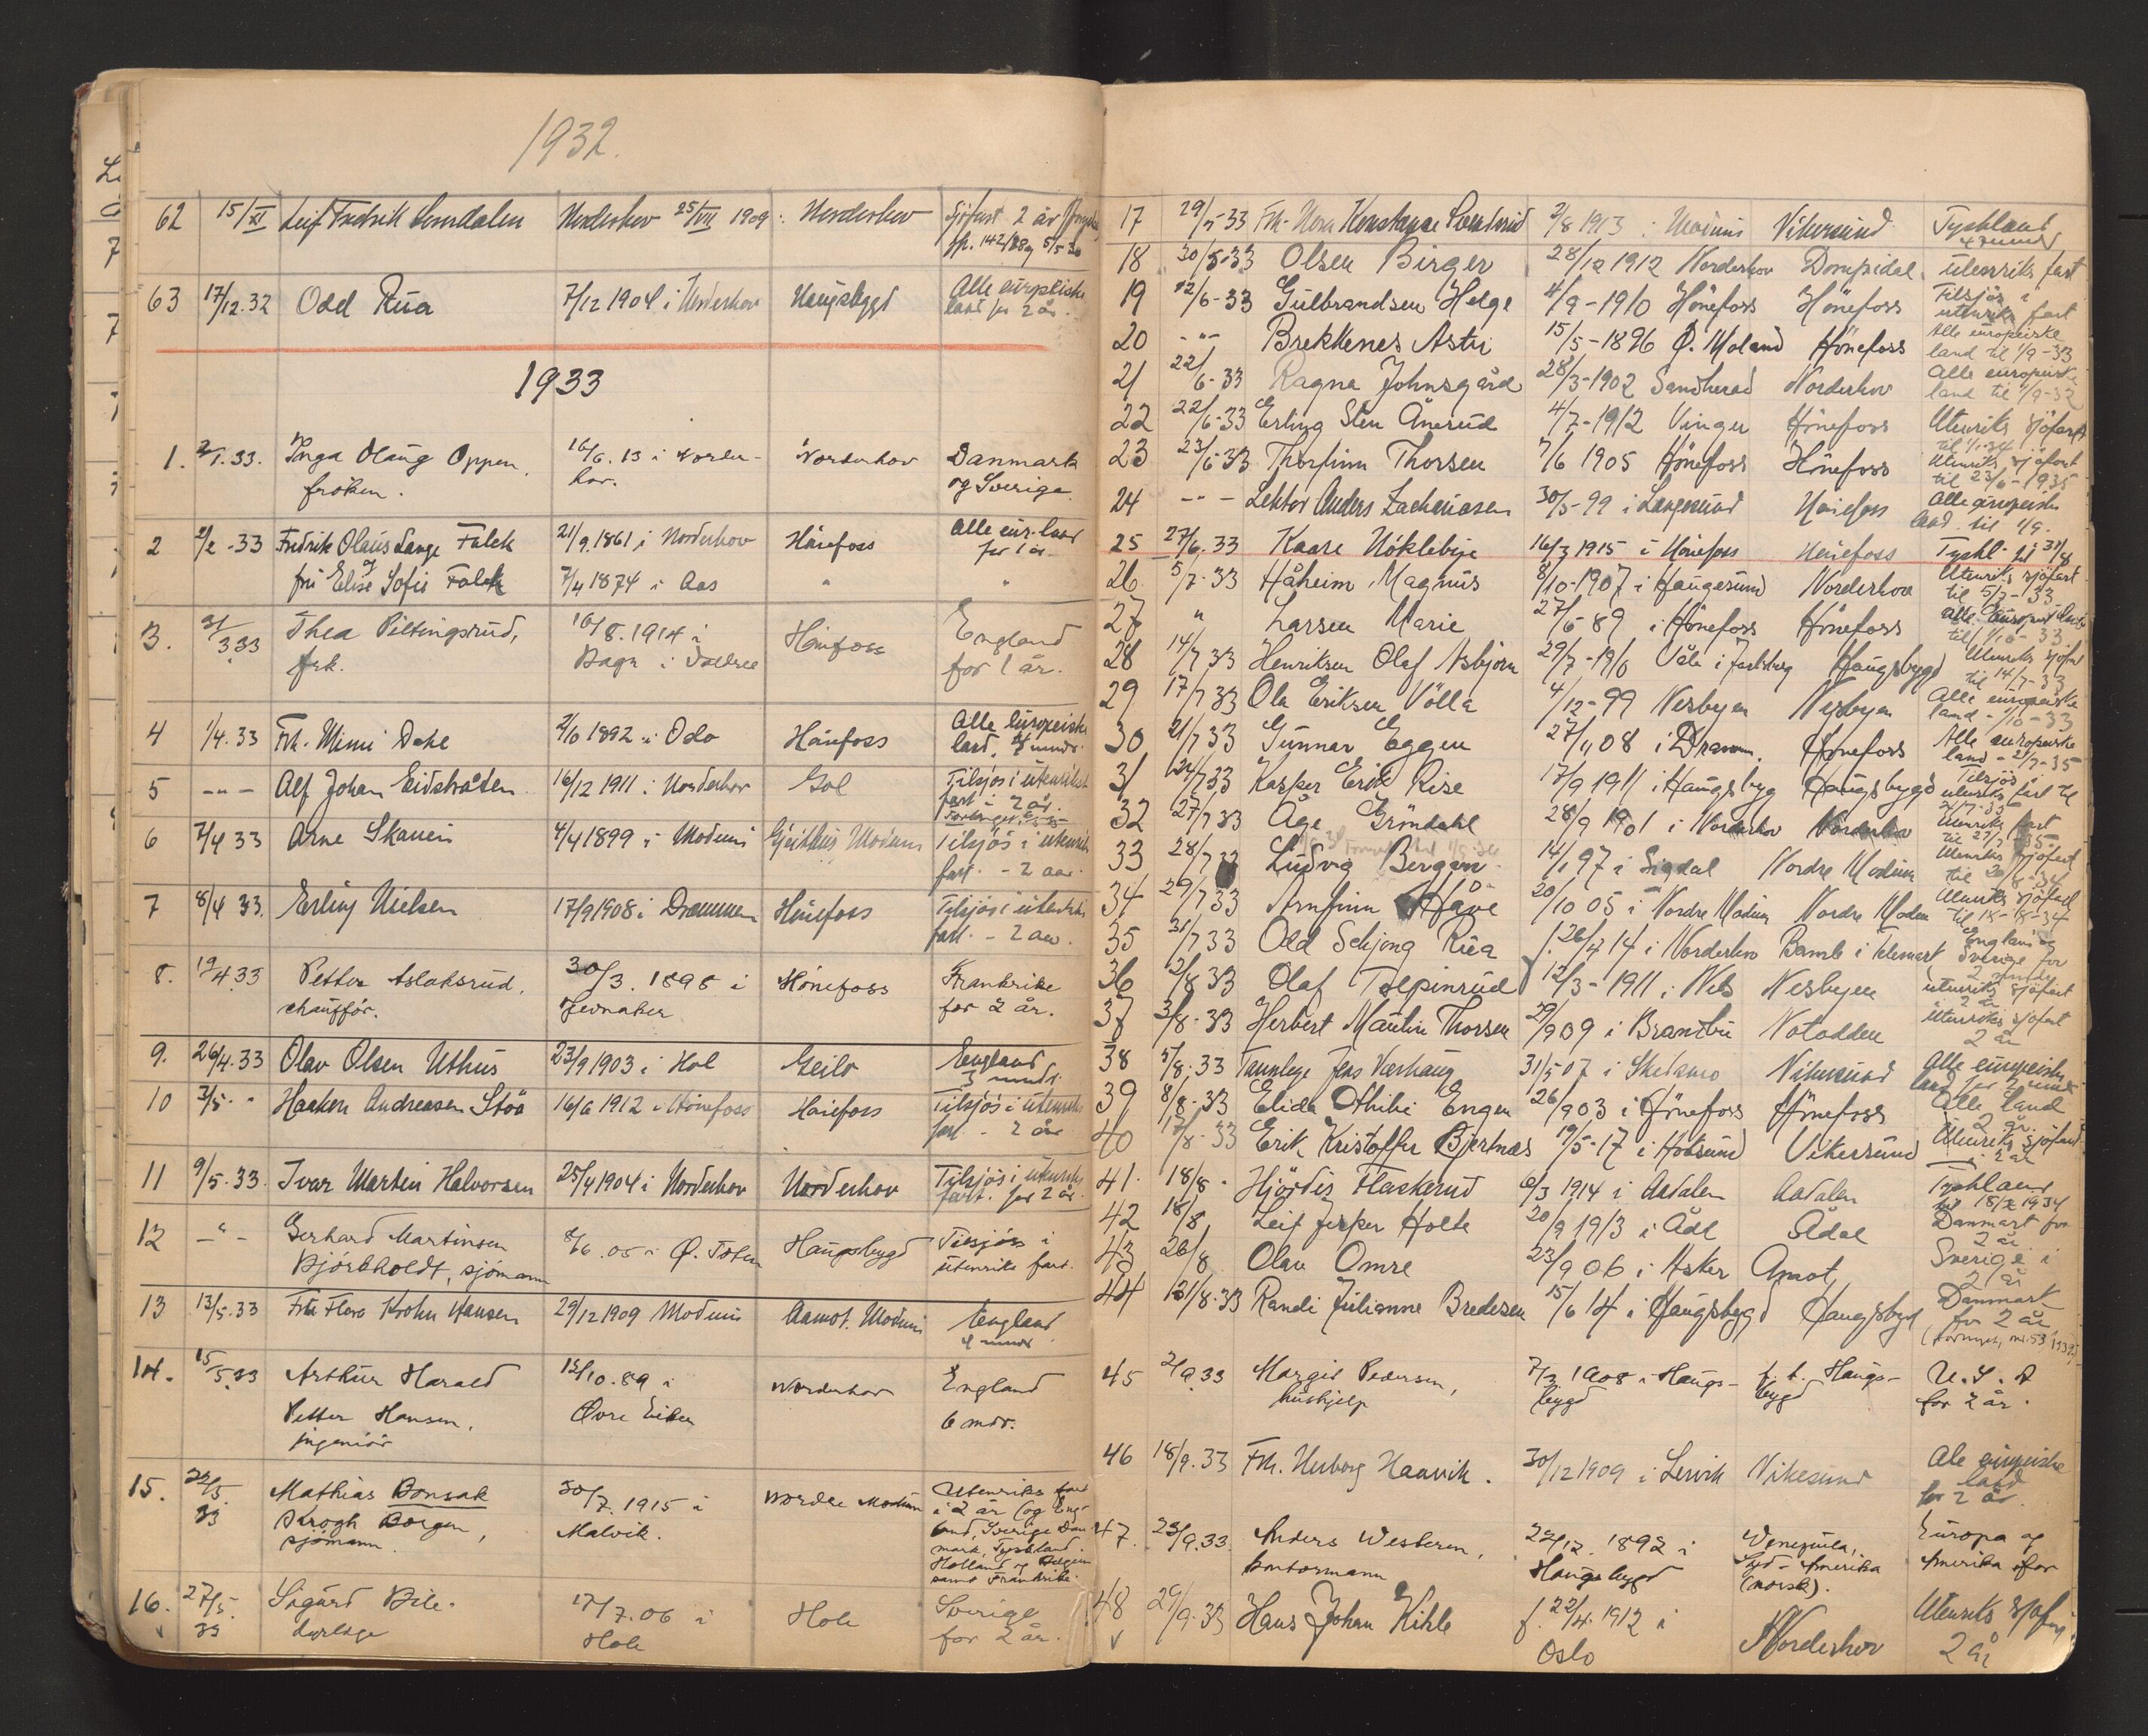 1932.
62 15/XI Leif Fredrik Norderhov 25/VII 1909 Norderhov Sjöfart 2 år
63 17/12.32 Odd Rua 7/12 1904 i Norderhov Haugsbygd Alle europeiske
land for 2 år.
1933
1. 2/1.33. Inga Olaug Oppen, 16/6.13 i Norder- Norderhov Danmark
fröken. hov. og Sverige.
2 2/2-33 Fredrik Olaus Lange Falck 21/9.1861 i Norderhov Hönefoss Alle eur. land
og for 1 år.
fru Elise Sofie Falck 7/4 1874 i Aas " "
3. 31/3 33 Thea Piltingsrud, 16/8.1914 i Hönefoss England
frk. Bagn i Valdres for 1 år.
4 1/4.33 Frk. Mimi Dahl 2/6 1892 i Oslo Hönefoss Alle europeiske
land, 4 mndr.
5 -"- Alf Johan Eidstråten 16/12 1911 i Norderhov Gol Tilsjös i utenriks
fart i 2 år.
6 7/4 33 Arne Skauen 4/4 1899 i Modum Geithus, Modum Tilsjös i utenriks
fart. - 2 aar.
7 8/4 33. Erling Nielsen 17/9 1908 i Drammen Hönefoss Tilsjös i utenriks
fart. - 2 aar.
8. 19/4.33 Petter Aslaksrud, 30/3. 1898 i Hönefoss Frankrike
chaufför. Jevnaker for 2 år.
9. 26/4.33 Olav Olsen Uthus 23/9 1903 i Hol Geilo England
3 mndr.
10 3/5 " Haakon Andreasen Stöa 16/6 1912 i Hönefoss Hönefoss Tilsjös i utenriks
fart - 2 år
11 9/5.33. Ivar Martin Halvorsen 25/4 1904 i Norderhov Norderhov Tilsjös i utenriks
fart. for 2 år.
12 -"- Gerhard Martinsen 8/6.05 i Ø. Toten Haugsbygd Tilsjös i
Björkholdt, sjömann utenriks fart.
13 13/5.33 Frk Flora Krohn Hansen 29/12 1909 Modum Aamot. Modum England
4 mndr.
14. 15/5.33 Arthur Harald 12/10.89 i Norderhov England
Petter Hansen, Övre Eiker 6 mdr.
ingeniör
15. 22/5. Mathias Bonsak 30/7. 1915 i Nordre Modum Utenriks fart
33 Krogh Borgen, Malvik. i 2 år (og Eng-
sjömann. land, Sverige Dan
mark, Tyskland.
Holland og Belgien
samt Frankrike.
16. 27/5. Sigurd Bile. 17/7.06 i Hole Sverige
33 dyrlege Hole for 2 år.
17 29/5 33 Frk. Nora Konstanse 2/8 1913 i Modum Vikersund Tyskland
4 mndr
18 30/5-33 Olsen Birger 28/12 1912 Norderhov utenriks fart
19 12/6-33 Gulbrandsen Helge 4/9-1910 Hönefoss Hönefoss Tilsjös i
utenriks fart
20 -"- Brekkenes Astri 15/5-1896 Ø. Moland Hönefoss Alle europeiske
land til 1/9-33
21 22/6-33 Ragna Johnsgård 28/3-1902 Sandherad Norderhov Alle europeiske
land til 1/9-33
22 22/6-33 Erling Sten Ånerud 4/7-1912 Vinger Hönefoss Utenriks sjöfart
23 23/6-33 Thorfinn Thorsen 7/6 1905 Hönefoss Hönefoss Utenriks sjöfart
til 23/6-1935
24 -"- Lektor Anders Zachariasen 30/5-99 i Langesund Hönefoss Alle europeiske
land til 1/9.
25 27/6.33 Kaare Nöklebye 16/3 1915 i Hönefoss Hönefoss Tyskl. til 31/8
26. 5/7-33 Håheim, Magnus 8/10-1907 i Haugesund Norderhov Utenriks sjöfart
til 5/7-33
27 " Larsen Marie 27/6-89 i Hönefoss Hönefoss
til 1/10-33
28 14/7 33 Henriksen Olaf Asbjörn 29/7-1916 Våle i Jarlsberg Haugsbygd Utenriks sjöfart
til 14/7-33
29 17/7 33 Ole Eriksen Völla 4/12-99 Nesbyen Nesbyen Alle europeiske
land - 1/10-33
30 21/7 33 Gunnar Eggen 27/11 08 i Dramm. Hönefoss Alle europeiske
land - 21/7-35
31 24/7 33 Kasper Erik Rise 17/9 1911 i Haugsbyg Haugsbygd Tilsjös
utenriks fart til
32 27/7 33 Åge Gröndahl 28/9 1901 i Norderhov Norderhov Utenriks fart
33 28/7 33 Ludvig Bergan 14/1 97 i Sigdal Nordre Modum Utenriks sjöfart
34 29/7 33 Arnfinn Håve 20/10 05 i Nordre Modum Nordre Modum Utenriks sjöfart
til 18-8-34
35 31/7 33 Odd Schjong Rua f. 26/4 14 i Norderhov Bamle i Telemark England og
Sverige for
2 mndr
36 2/8 33 Olaf Tolpinrud 12/3-1911 i Nes Nesbyen utenriks sjöfart
i 2 år
37 3/8-33 Herbert Mautin Thorsen 29/9 09 i Brandbu Notodden Utenriks sjöfart
2 år
38 5/8.33 Tannlege Jens 31/5 07 i Vikersund Alle europeiske
land for 2 mndr
39 8/8-33 Elida Othilie Engen 26/9 03 i Hönefoss Hönefoss Alle land
2 år.
40 17/8-33 Erik Kristoffer Bjertnæs 19/5-17 i Hokksund Vikersund Utenriks sjöfart
i 2 år
41. 18/8 - Hjördis Flaskerud 6/3 1914 i Aadalen Aadalen Tyskland
til 18/2 1934
42 18/8 Leif Jesper Holte 20/9 1913 i Ådl Ådal Danmark for
2 år
43 26/8 Olav Omre 23/9 06 i Asker Åmot Sverige i
2 år
44 31/8.33 Randi Julianne Bredesen 15/6 14 i Haugsbygd Haugsbygd Danmark
for 2 år
45 2/9.33 Margit Pedersen, 7/3 1908 i Haugs- f. t. Haugs- U.S.A
hushjelp bygd bygd for 2 år.
46 18/9.33 Frk. Herborg Haavik. 30/12 1909 i Lervik Vikesund Alle europeiske
land
for 2 år.
47. 23/9.33. Anders Westeren, 22/12. 1892 i Venezuela, Europa og
kontormann Haugsbygd Syd-Amerika Amerika
(norsk).
48 29/9.33 Hans Johan Kihle f. 22/4.1912 i Norderhov Utenriks sjöfart
Oslo 2 år